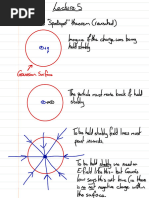 Lecture 5
Spotspot theorem (revisited)
Imagine if the charge was being
held stably
+q
Gaussian Surface
The particle must move back if held
stably
To be held stably field lines must
point inwards
To be held stably we need an
E-field like this but Gauss
law says this not since
is no net negative charge within
the surface.